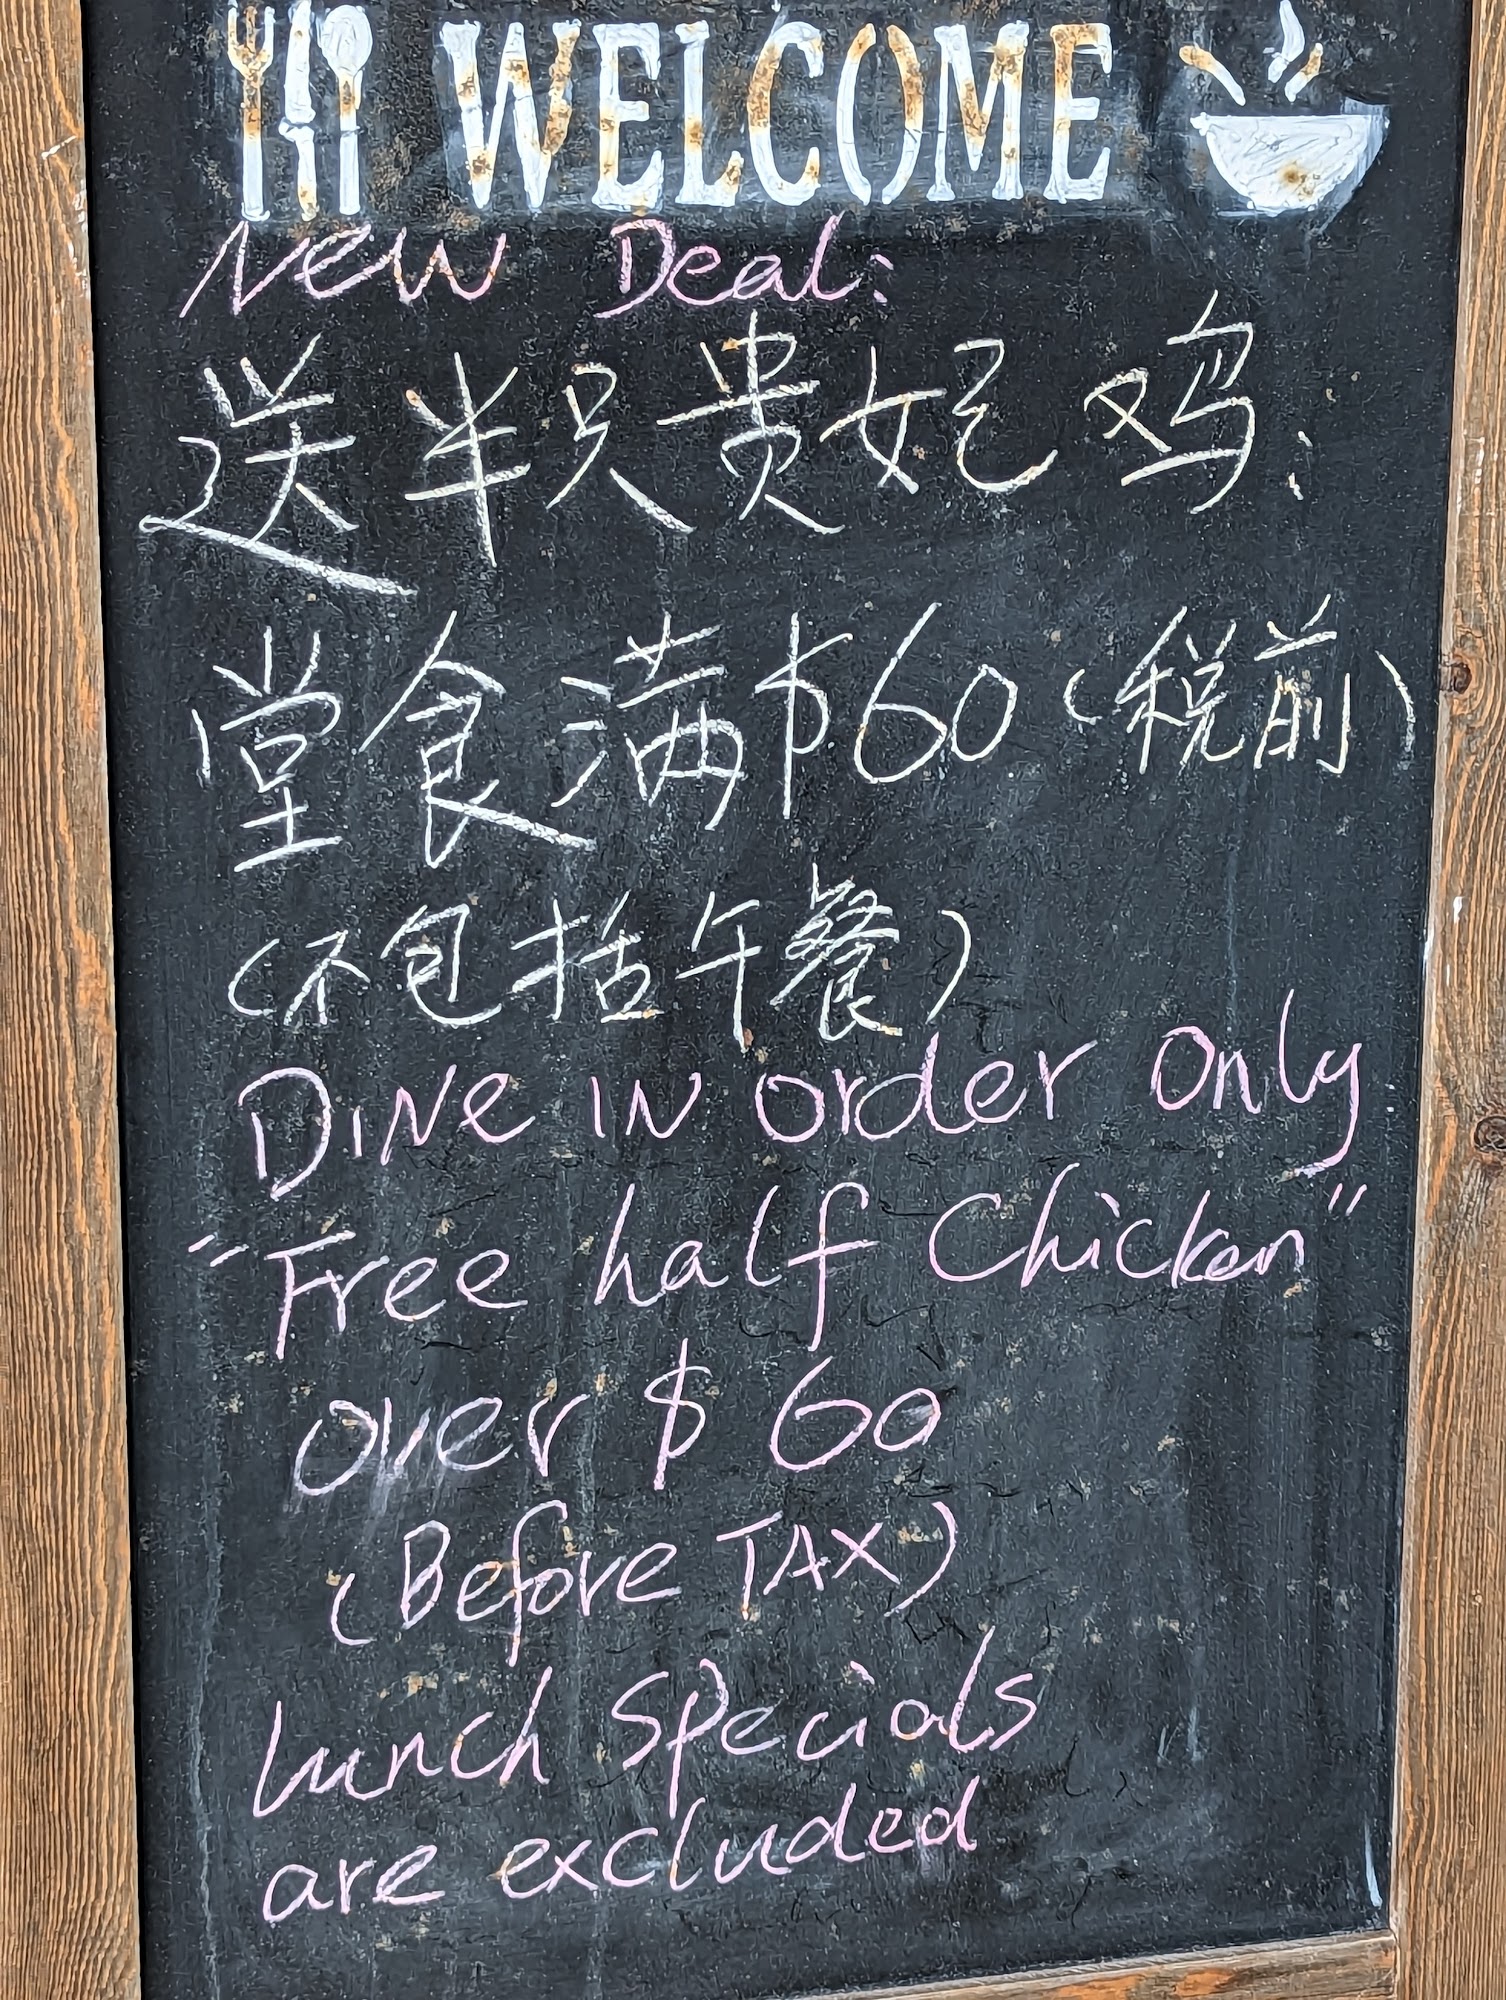 WELCOME
New Deal:
送半只贵妃鸡.
堂食满$60(税前)
(不包括午餐)
DiNe IN order Only
"Free half Chicken"
over $60
(Before TAX)
Lunch Specials
are excluded